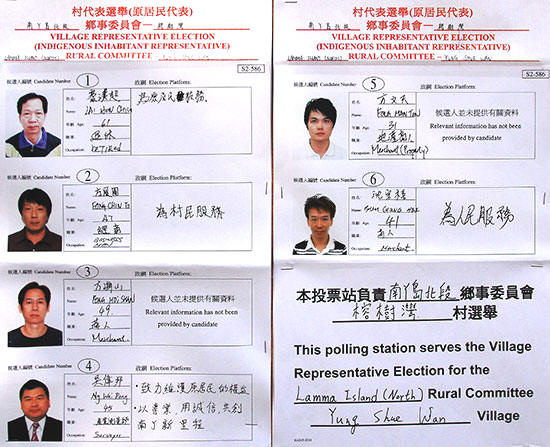 村代表選舉(原居民代表)
南丫島北段 鄉事委員會－
VILLAGE REPRESENTATIVE ELECTION
(INDIGENOUS INHABITANT REPRESENTATIVE)
RURAL COMMITTEE -
S2-586
候選人編號 Candidate Number 1
政綱 Election Platform:
姓名 Name
年齡 Age 61
職業 退休
Occupation RETIRED
候選人編號 Candidate Number 2
政綱 Election Platform:
姓名 Name
年齡 Age 47
職業
Occupation BUSINESS
為村民服務
候選人編號 Candidate Number 3
政綱 Election Platform:
姓名 Name
年齡 Age 49
職業 商人
Occupation Merchant
候選人並未提供有關資料
Relevant information has not been
provided by candidate
候選人編號 Candidate Number 4
政綱 Election Platform:
姓名 Name
Ng Wai Pong
年齡 Age 45
職業
Occupation Surveyor
·致力維護原居民的權益
·以專業,用誠信,共創
南丫新里程
村代表選舉(原居民代表)
南丫島北段 鄉事委員會－
VILLAGE REPRESENTATIVE ELECTION
(INDIGENOUS INHABITANT REPRESENTATIVE)
LAMMA ISLAND (NORTH) RURAL COMMITTEE - YUNG SHUE WAN
S2-586
候選人編號 Candidate Number 5
政綱 Election Platform:
姓名 Name 方文天
年齡 Age 31
職業
Occupation Merchant (Property)
候選人並未提供有關資料
Relevant information has not been
provided by candidate
候選人編號 Candidate Number 6
政綱 Election Platform:
姓名 Name
年齡 Age 41
職業 商人
Occupation Merchant
為人民服務
本投票站負責 南丫島北段 鄉事委員會
榕樹灣 村選舉
This polling station serves the Village
Representative Election for the
Lamma Island (North) Rural Committee
Yung Shue Wan Village